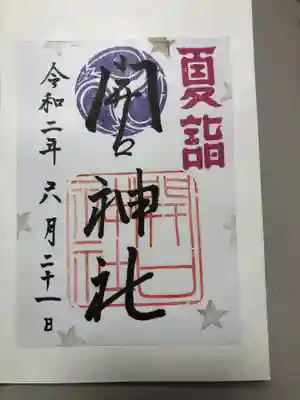 夏詣
開口神社
令和二年 六月二十一日
開口神社